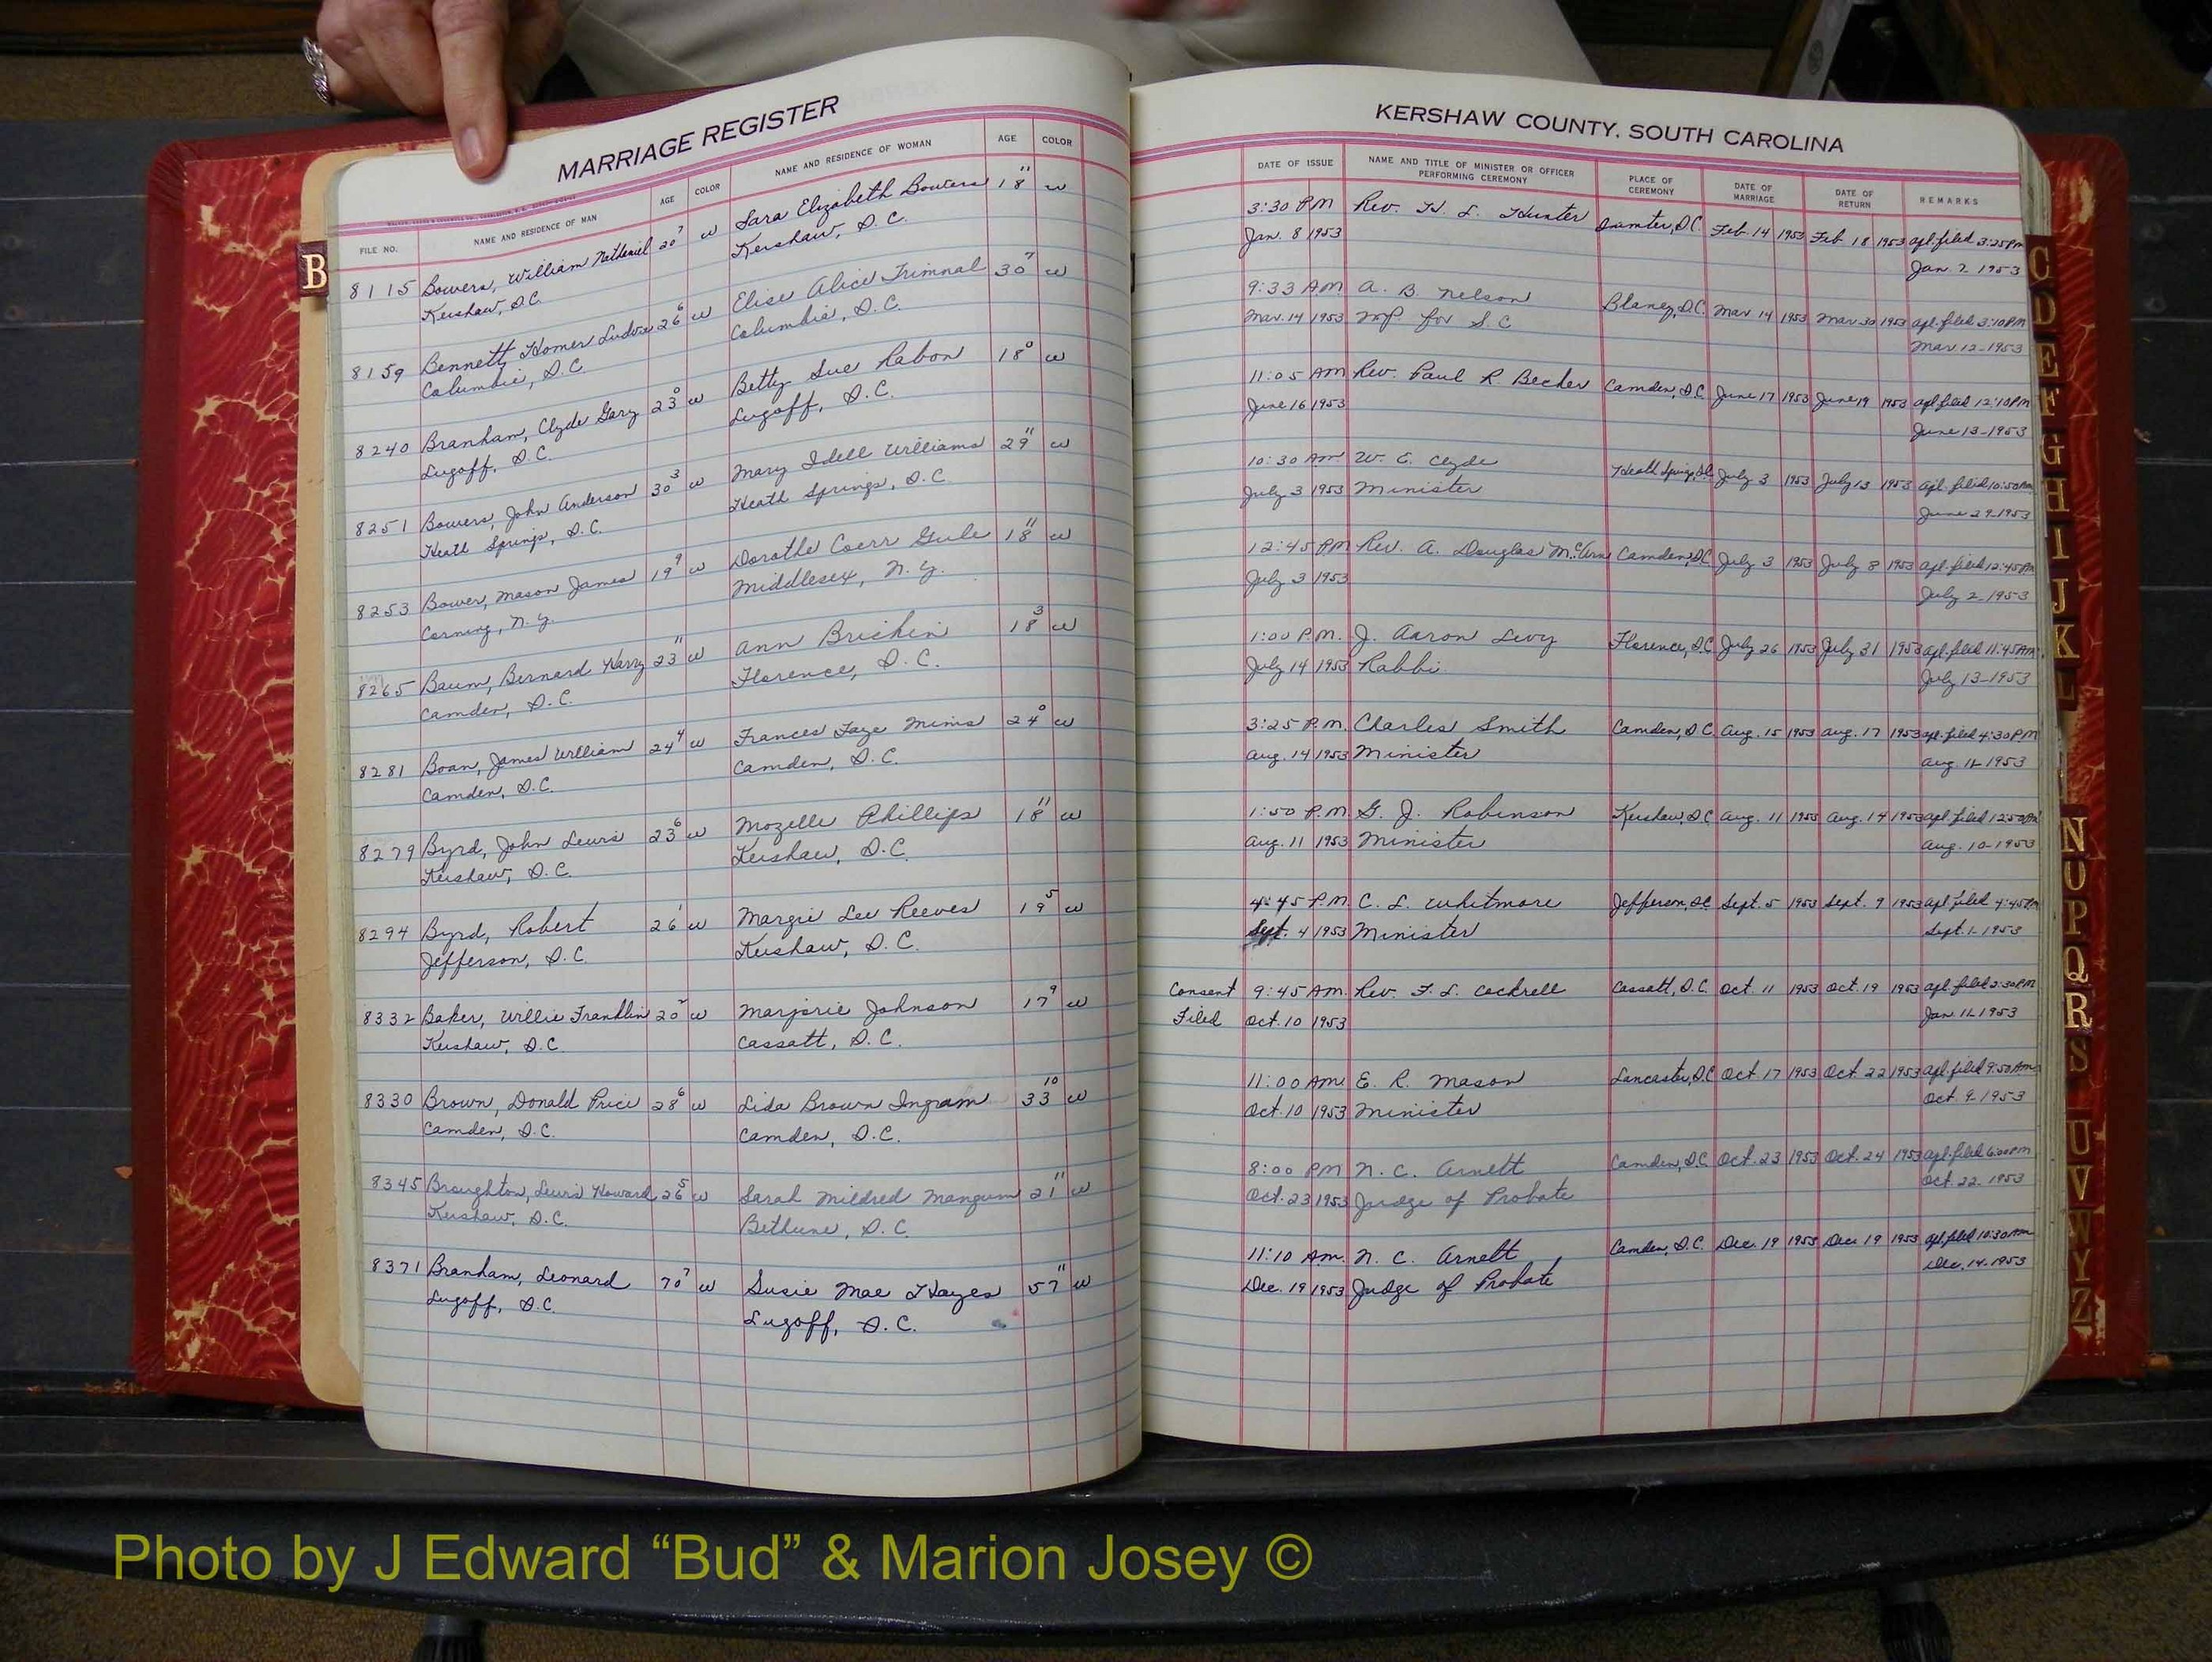 MARRIAGE REGISTER
FILE NO. NAME AND RESIDENCE OF MAN AGE COLOR NAME AND RESIDENCE OF WOMAN AGE COLOR
8115 Bowers, William Nathaniel 20 7 w Sara Elizabeth Bowers 18 11 w
Kershaw, S.C. Kershaw, S.C.
8159 Bennett, Homer 26 6 w Elise Alice Trimnal 30 7 w
Columbia, S.C. Columbia, S.C.
8240 Branham, Clyde Gary 23 0 w Betty Sue Rabon 18 0 w
Lugoff, S.C. Lugoff, S.C.
8251 Bowers, John Anderson 30 3 w Mary Idell Williams 29 11 w
Heath Springs, S.C. Heath Springs, S.C.
8253 Bower, Mason James 19 9 w Dorothe Coerr Gule 18 11 w
Corning, N.Y. Middlesex, N.Y.
8265 Baum, Bernard Harry 23 11 w Ann Brickin 18 3 w
Camden, S.C. Florence, S.C.
8281 Boan, James William 24 4 w Frances Faye Mims 24 0 w
Camden, S.C. Camden, S.C.
8279 Byrd, John Lewis 23 6 w Mozelle Phillips 18 11 w
Kershaw, S.C. Kershaw, S.C.
8294 Byrd, Robert 26 1 w Margie Lee Reeves 19 5 w
Jefferson, S.C. Kershaw, S.C.
8332 Baker, Willie Franklin 20 2 w Marjorie Johnson 17 9 w
Kershaw, S.C. Cassatt, S.C.
8330 Brown, Donald Price 28 6 w Lida Brown Ingram 33 10 w
Camden, S.C. Camden, S.C.
8345 Broughton, Lewis Howard 26 5 w Sarah Mildred Mangum 21 11 w
Kershaw, S.C. Bethune, S.C.
8371 Branham, Leonard 70 7 w Susie Mae Hayes 57 11 w
Lugoff, S.C. Lugoff, S.C.
KERSHAW COUNTY, SOUTH CAROLINA
DATE OF ISSUE NAME AND TITLE OF MINISTER OR OFFICER PERFORMING CEREMONY PLACE OF CEREMONY DATE OF MARRIAGE DATE OF RETURN REMARKS
3:30 PM Rev. H. L. Hunter Sumter, S.C. Feb. 14 1953 Feb. 18 1953 apl. filed 3:25 PM
Jan. 8 1953 Jan. 2 1953
9:33 AM A. B. Nelson Blaney, S.C. Mar 14 1953 Mar 30 1953 apl. filed 3:10 PM
Mar. 14 1953 NP for S.C Mar. 12-1953
11:05 AM Rev. Paul R. Becker Camden, S.C. June 17 1953 June 19 1953 apl. filed 12:10 PM
June 16 1953 June 13-1953
10:30 AM W. E. Clyde Heath Springs, S.C. July 3 1953 July 13 1953 apl. filed 10:50 AM
July 3 1953 Minister June 29-1953
12:45 PM Rev. A. Douglas Camden, S.C. July 3 1953 July 8 1953 apl. filed 12:45 PM
July 3 1953 July 2-1953
1:00 P.M. J. Aaron Levy Florence, S.C. July 26 1953 July 31 1953 apl. filed 11:45 AM
July 14 1953 Rabbi July 13-1953
3:25 P.M. Charles Smith Camden, S.C. Aug. 15 1953 Aug. 17 1953 apl. filed 4:30 PM
Aug. 14 1953 Minister Aug. 11-1953
1:50 P.M. G. J. Robinson Kershaw, S.C. Aug. 11 1953 Aug. 14 1953 apl. filed 12:50 PM
Aug. 11 1953 Minister Aug. 10-1953
4:45 P.M. C. L. Whitmore Jefferson, S.C. Sept. 5 1953 Sept. 9 1953 apl. filed 4:45 PM
Sept. 4 1953 Minister Sept. 1-1953
Consent 9:45 AM. Rev. F. L. Cockrell Cassatt, S.C. Oct. 11 1953 Oct. 19 1953 apl. filed 2:30 PM
Filed Oct. 10 1953 Jan. 11 1953
11:00 AM. E. R. Mason Lancaster, S.C. Oct. 17 1953 Oct. 22 1953 apl. filed 9:50 AM
Oct. 10 1953 Minister Oct. 9-1953
8:00 PM N. C. Arnett Camden, S.C. Oct. 23 1953 Oct. 24 1953 apl. filed 6:00 PM
Oct. 23 1953 Judge of Probate Oct. 22. 1953
11:10 AM. N. C. Arnett Camden, S.C. Dec. 19 1953 Dec. 19 1953 apl. filed 10:30 AM
Dec. 19 1953 Judge of Probate Dec. 14. 1953
B
C
D
E
F
G
H
I
J
K
L
N
O
P
Q
R
S
U
V
W
Y
Z
Photo by J Edward “Bud” & Marion Josey ©